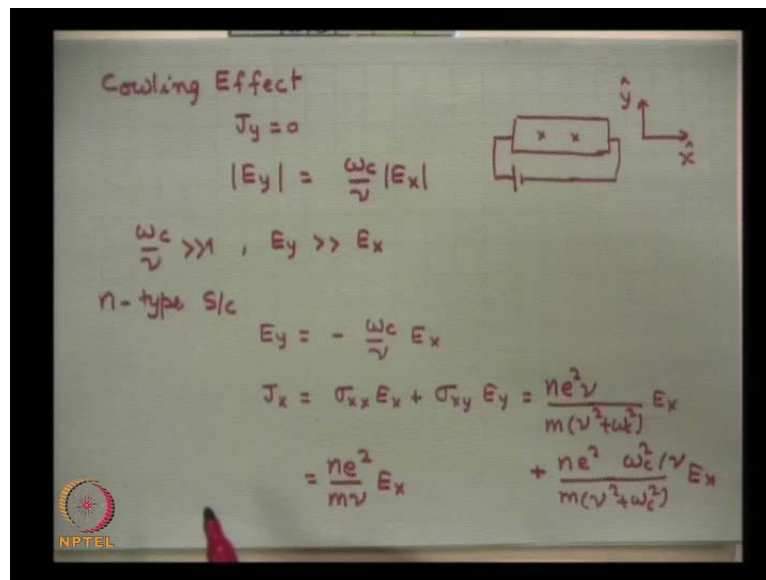 Cowling Effect
Jy = 0
|Ey| = ωc/ν |Ex|
ωc/ν >>1 , Ey >> Ex
n-type S/c
Ey = - ωc/ν Ex
Jx = σxx Ex + σxy Ey = ne²ν / m(ν²+ωc²) Ex
= ne²/mν Ex + ne² ωc²/ν / m(ν²+ωc²) Ex
ŷ
x x
x̂
NPTEL